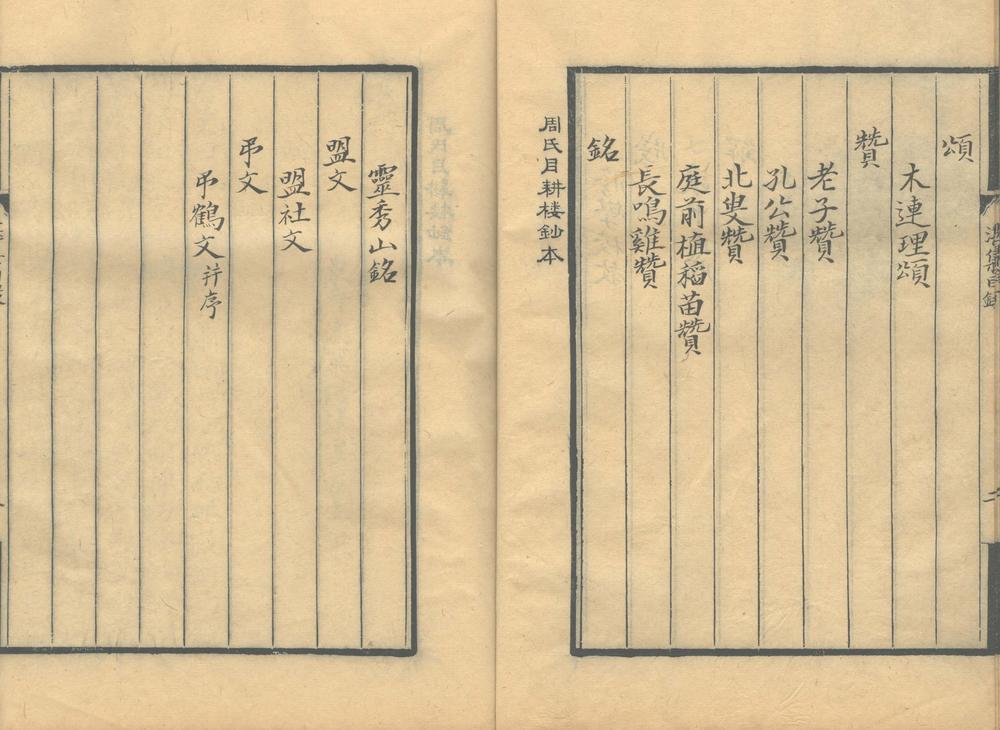 頌
木連理頌
贊
老子贊
孔公贊
北叟贊
庭前植稻苗贊
長鳴雞贊
銘
周氏目耕楼鈔本
靈秀山銘
盟文
盟社文
弔文
弔鶴文并序